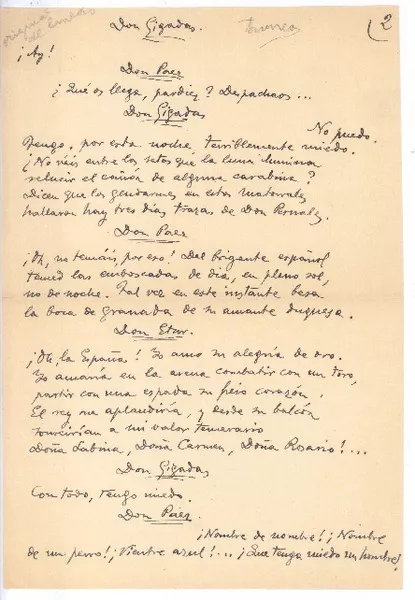 Don Gigadas.
2
¡Ay!
Don Paez
¿Qué os llega, pardiez? Despachaos...
Don Gigadas
No puedo.
Tengo, por esta noche, terriblemente miedo.
¿No véis entre los setos que la luna ilumina
relucir el cañón de alguna carabina?
Dicen que los gendarmes en estos matorrales
hallaron hay tres días trazas de Don Pernales.
Don Paez
¡Oh, no temáis, por eso! Del brigante español
temed las emboscadas de día, en pleno sol,
no de noche. Tal vez en este instante besa
la boca de granada de su amante duquesa.
Don Etur.
¡Oh la España! Yo amo su alegría de oro.
Yo amaría en la arena combatir con un toro,
partir con una espada su fiero corazón.
El rey me aplaudiría, y desde su balcón
sonreirían a mi valor temerario
Doña Sabina, Doña Carmen, Doña Rosario!...
Don Gigadas
Con todo, tengo miedo.
Don Páez
¡Nombre de nombre! ¡Nombre
de un perro! ¡Vientre azul!... ¡Que tenga miedo un hombre!